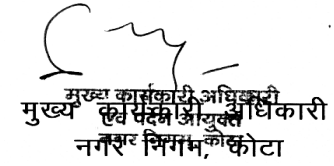 मुख्य कार्यकारी अधिकारी
एवं पदेन आयुक्त
नगर निगम, कोटा
मुख्य कार्यकारी अधिकारी
नगर निगम, कोटा